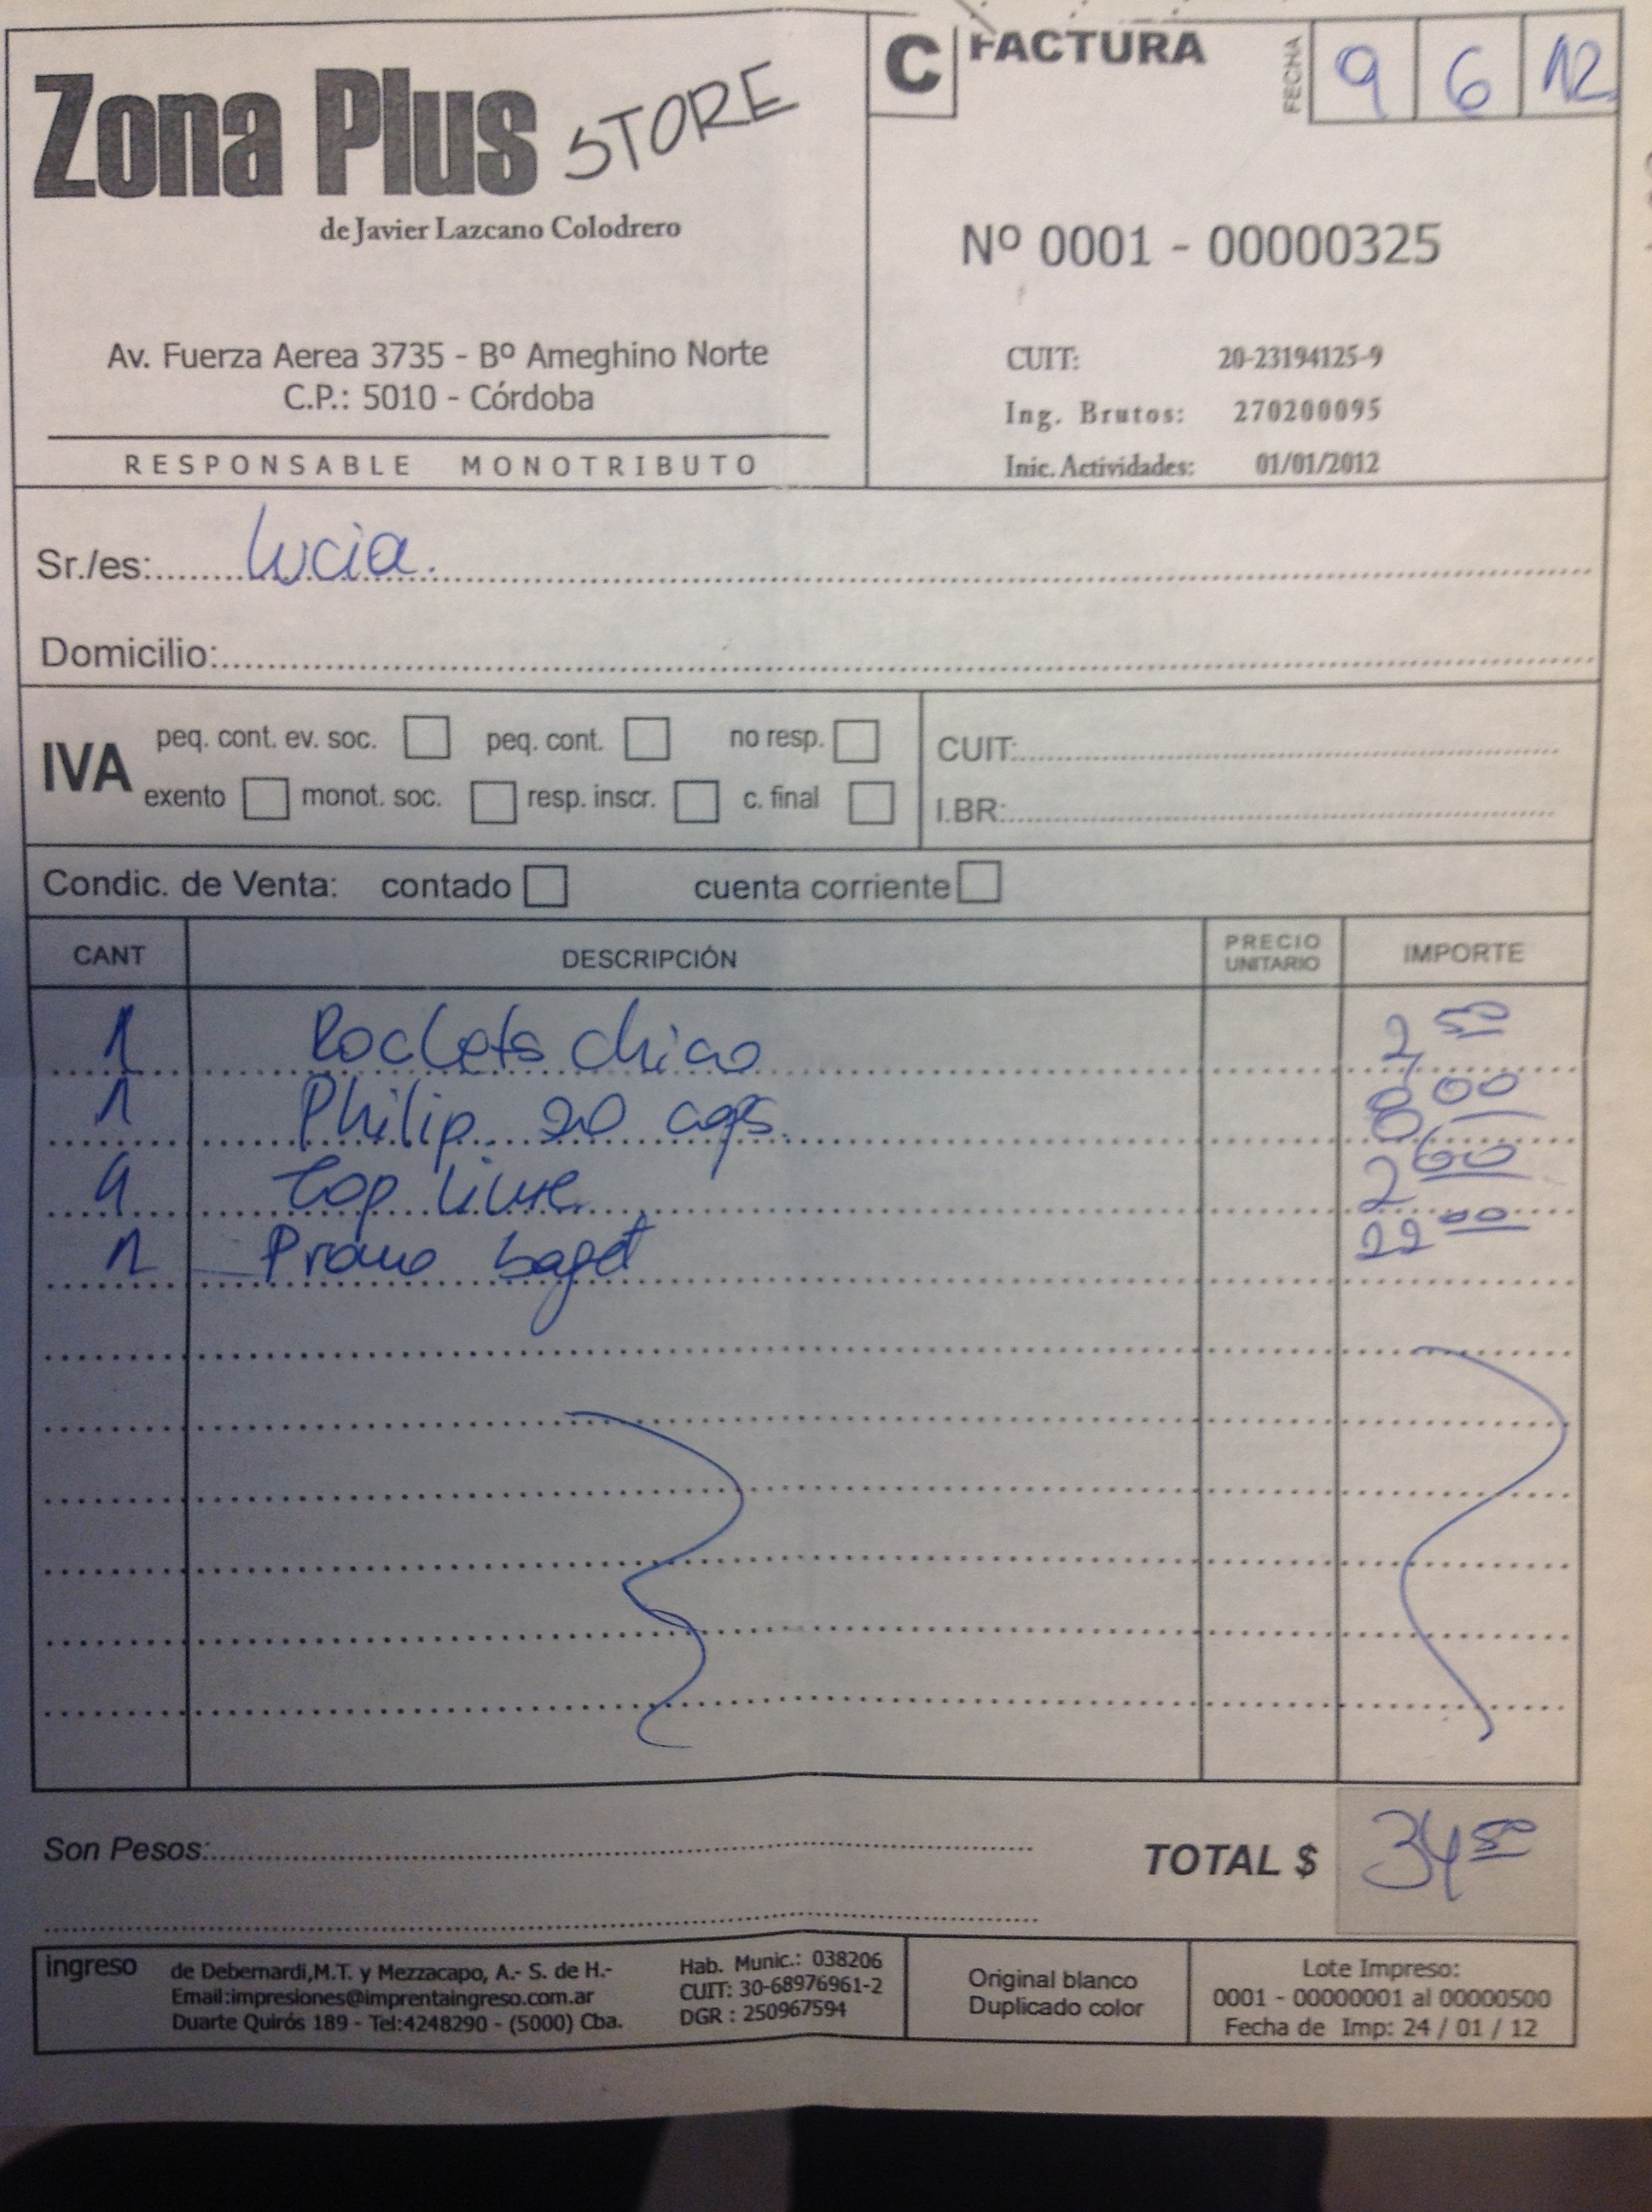 Zona Plus STORE
de Javier Lazcano Colodrero
Av. Fuerza Aerea 3735 - Bº Ameghino Norte
C.P.: 5010 - Córdoba
RESPONSABLE MONOTRIBUTO
C FACTURA
FECHA 9 6 12
Nº 0001 - 00000325
CUIT: 20-23194125-9
Ing. Brutos: 270200095
Inic. Actividades: 01/01/2012
Sr./es: Lucia.
Domicilio:
IVA
peq. cont. ev. soc. peq. cont. no resp.
exento monot. soc. resp. inscr. c. final
CUIT:
I.BR:
Condic. de Venta: contado cuenta corriente
CANT DESCRIPCIÓN PRECIO UNITARIO IMPORTE
1 Rocklets chico 2,50
1 Philip 20 8 00
Top line 2 60
1 Promo baget 22 00
Son Pesos:
TOTAL $ 34 50
ingreso
de Debernardi,M.T. y Mezzacapo, A.- S. de H.-
Email:impresiones@imprentaingreso.com.ar
Duarte Quirós 189 - Tel:4248290 - (5000) Cba.
Hab. Munic.: 038206
CUIT: 30-68976961-2
DGR : 250967594
Original blanco
Duplicado color
Lote Impreso:
0001 - 00000001 al 00000500
Fecha de Imp: 24 / 01 / 12